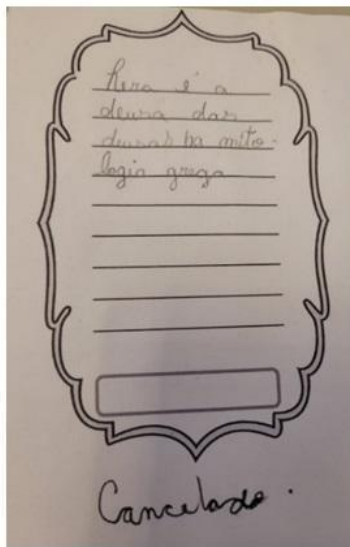 Hera é a
deusa das
deusas na mito-
logia grega
Cancelado.